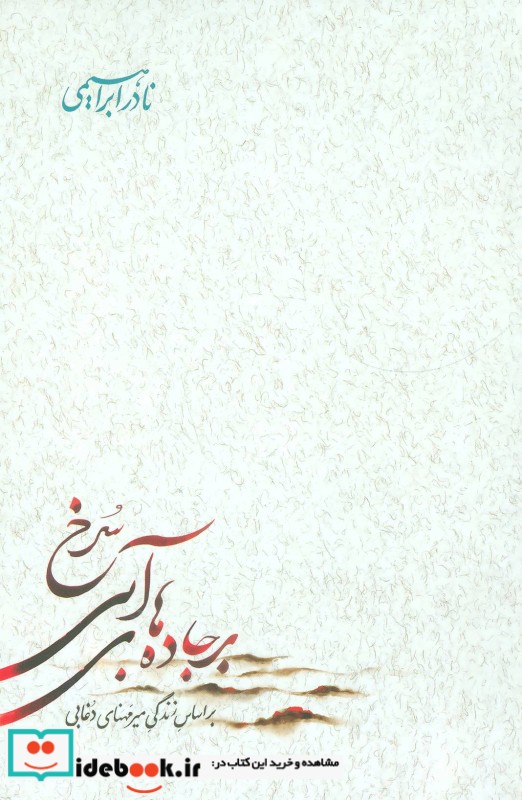 نادر ابراهیمی
بر جاده‌های آبی سرخ
بر اساس زندگی میرمهنای دغابی
مشاهده و خرید این کتاب در:
idebook.ir